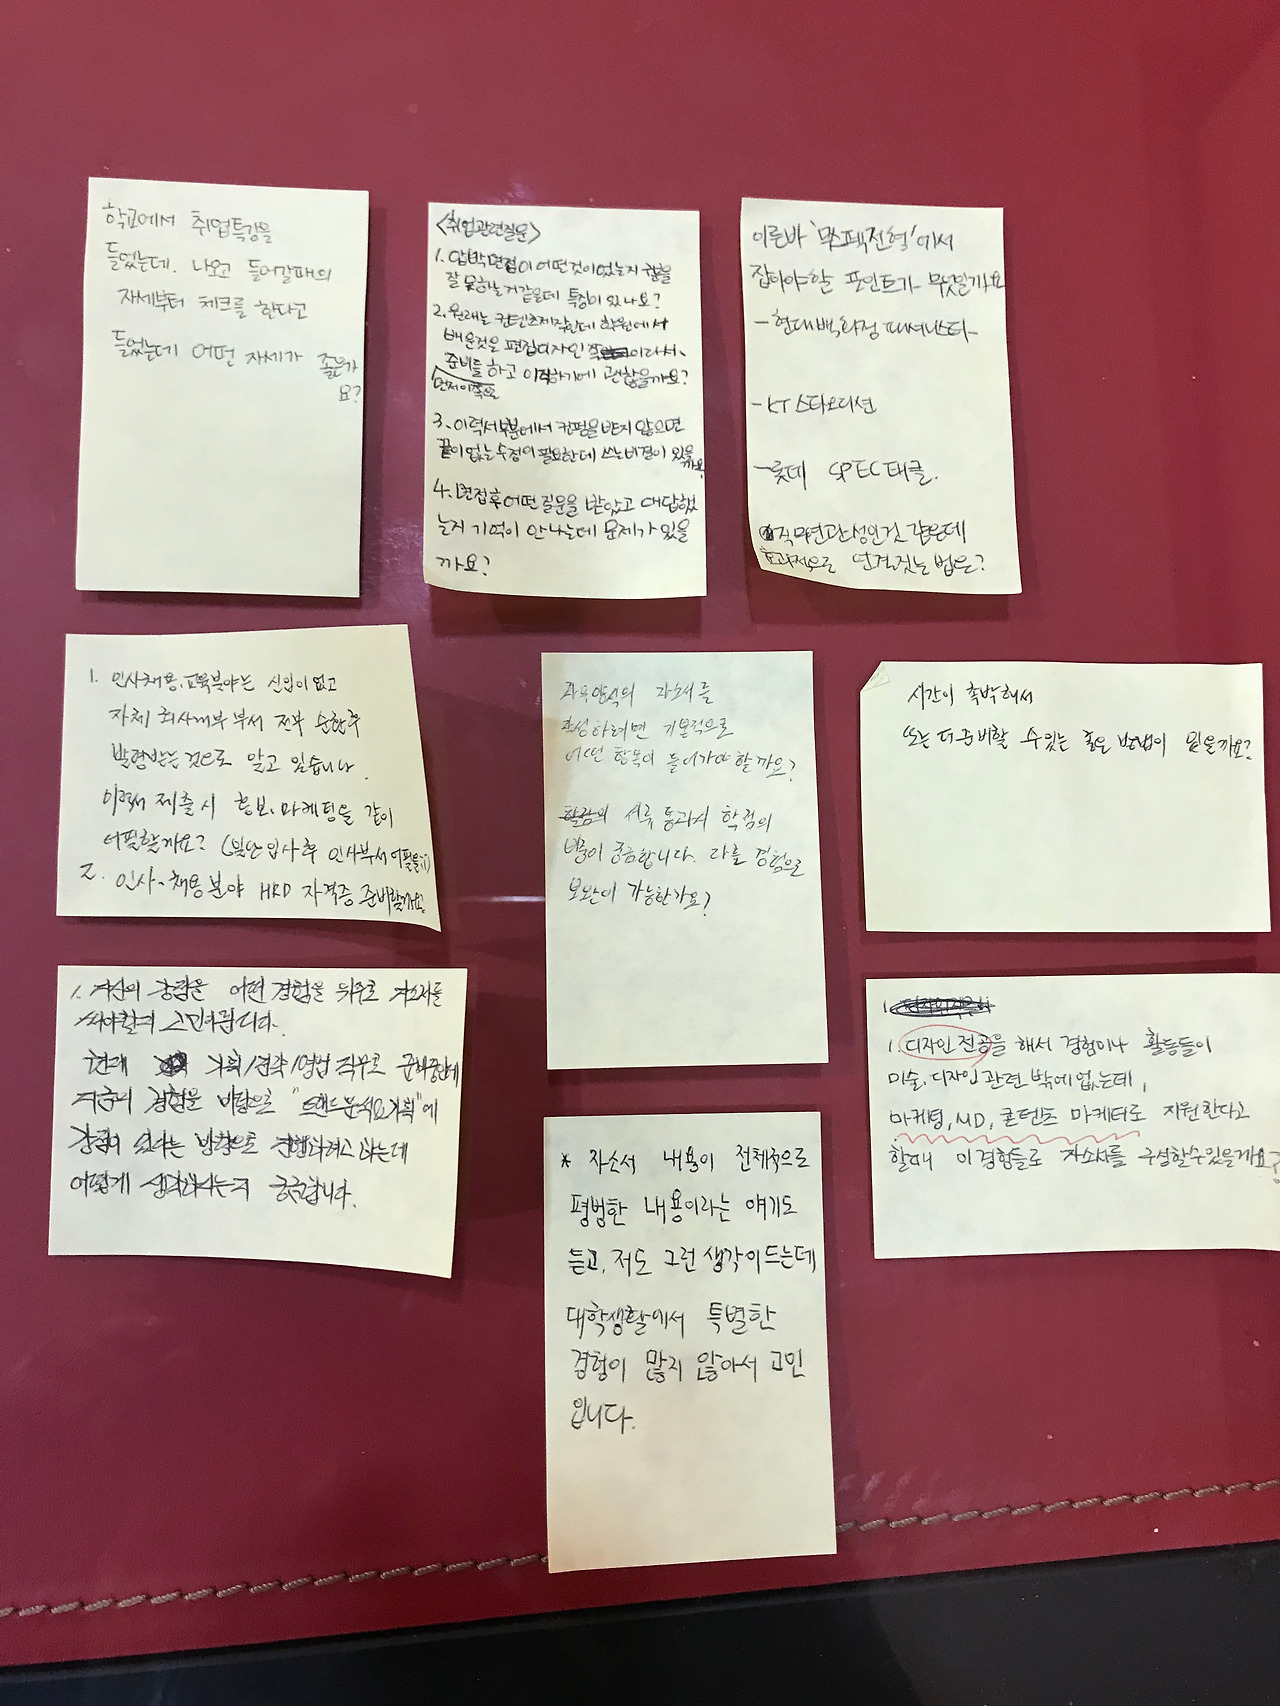 학교에서 취업특강을
들었는데. 나오고 들어갈때의
자세부터 체크를 한다고
들었는데 어떤 자세가 좋은가
요?
<취업관련질문>
1. 압박면접이 어떤것이었는지
잘 못하는거같은데 특징이 있나요?
2. 원래는 컨텐츠제작인데 학원에서
배운것은 편집디자인 이라서.
준비를 하고 이직하기에 괜찮을까요?
먼저 이쪽으로
3. 이력서부분에서 컨펌을 받지 않으면
끝이없는 수정이 필요한데 쓰는비결이 있을
까요?
4. 면접후 어떤 질문을 받았고 대답했
는지 기억이 안나는데 문제가 있을
까요?
이른바 '무스펙전형'에서
잡아야할 포인트가 무엇일까요
- 현대백화점 파셔니스타
- KT 스타오디션
- 롯데 SPEC태클.
직무연관성인것 같은데
효과적으로 연결짓는 법은?
1. 인사채용, 교육분야는 신입이 없고
자체 회사내부 부서 전부 순환후
발령받는 것으로 알고 있습니다.
이력서 제출시 홍보, 마케팅을 같이
어필할까요? (일단 입사후 인사부서 어필을;;)
2. 인사·채용분야 HRD 자격증 준비할까요?
자유양식의 자소서를
작성하려면 기본적으로
어떤 항목이 들어가야 할까요?
서류 통과시 학점의
비중이 궁금합니다. 다른 경험으로
보완이 가능한가요?
시간이 촉박해서
또는 더 준비할 수 있는 좋은 방법이 있을까요?
1. 자신의 강점을 어떤 경험을 위주로 자소서를
써야할지 고민이됩니다.
현재 기획/전략/영업 직무로 준비중인데
지금의 경험을 바탕으로 "트랜드분석&기획"에
강점이 있다는 방향으로 진행하려고 하는데
어떻게 생각하시는지 궁금합니다.
1. 디자인 전공을 해서 경험이나 활동들이
미술, 디자인 관련 밖에 없는데,
마케팅, MD, 콘텐츠 마케터로 지원한다고
할때 이 경험들로 자소서를 구성할수있을까요?
* 자소서 내용이 전체적으로
평범한 내용이라는 얘기도
듣고, 저도 그런 생각이 드는데
대학생활에서 특별한
경험이 많지 않아서 고민
입니다.